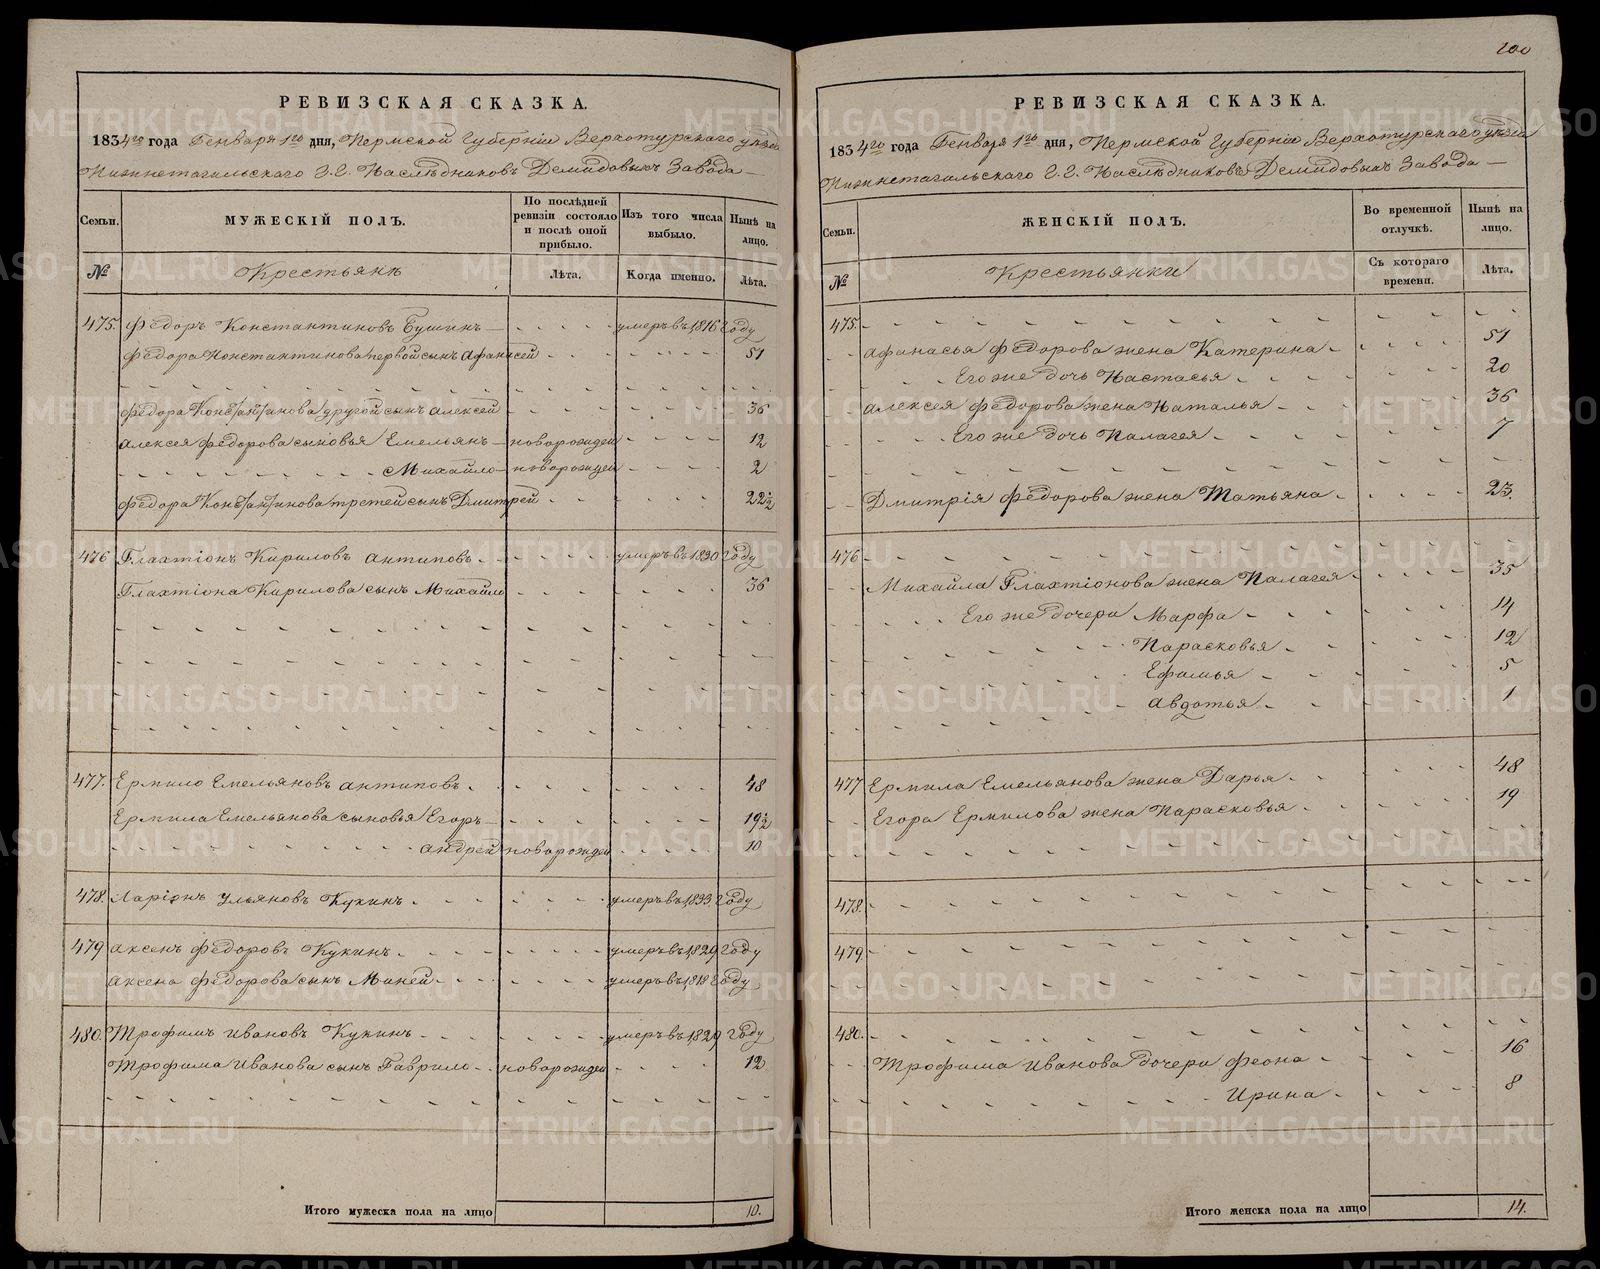 РЕВИЗСКАЯ СКАЗКА.
1834го года Генваря 1го дня, Пермской Губерніи Верхотурскаго уѣзда
Нижнетагильскаго Г.Г. Наслѣдниковъ Демидовыхъ Завода
Семьи. МУЖЕСКІЙ ПОЛЪ. По послѣдней ревизіи состояло и послѣ оной прибыло. Изъ того числа выбыло. Нынѣ на лицо.
№ Крестьянѣ Лѣта. Когда именно. Лѣта.
475. Федоръ Константиновъ Бушинъ умеръ въ 1816 году
Федора Константинова первой сынъ Афанасей 51
Федора Константинова другой сынъ Алексей 36
Алексея Федорова сыновья Емельянъ новорожден 12
Михайло новорожден 2
Федора Константинова третей сынъ Дмитрей 22½
476 Глахтіонъ Кириловъ Антиповъ умеръ въ 1830 году
Глахтіона Кирилова сынъ Михайло 36
477. Ермило Емельяновъ Антиповъ 48
Ермила Емельянова сыновья Егоръ 19½
Андрей новорожден 10
478. Ларіонъ Ульяновъ Кукинъ умеръ въ 1833 году
479 Аксенъ Федоровъ Кукинъ умеръ въ 1829 году
Аксена Федорова сынъ Миней умеръ въ 1818 году
480. Трофимъ Ивановъ Кукинъ умеръ въ 1829 году
Трофима Иванова сынъ Гаврило новорожден 12
Итого мужеска пола на лицо 10.
200
РЕВИЗСКАЯ СКАЗКА.
1834го года Генваря 1го дня, Пермской Губерніи Верхотурскаго уѣзда
Нижнетагильскаго Г.Г. Наслѣдниковъ Демидовыхъ Завода
Семьи. ЖЕНСКІЙ ПОЛЪ. Во временной отлучкѣ. Нынѣ на лицо.
№ Крестьянки Съ котораго времени. Лѣта.
475.
Афанасья Федорова жена Катерина 51
Его же дочь Настасья 20
Алексея Федорова жена Наталья 36
Его же дочь Палагея 7
Дмитрія Федорова жена Татьяна 23.
476
Михайла Глахтіонова жена Палагея 35
Его же дочери Марфа 14
Парасковья 12
Ефимья 5
Авдотья 1
477 Ермила Емельянова жена Дарья 48
Егора Ермилова жена Парасковья 19
478.
479
480.
Трофима Иванова дочери Феона 16
Ирина 8
Итого женска пола на лицо 14.
METRIKI.GASO-URAL.RU